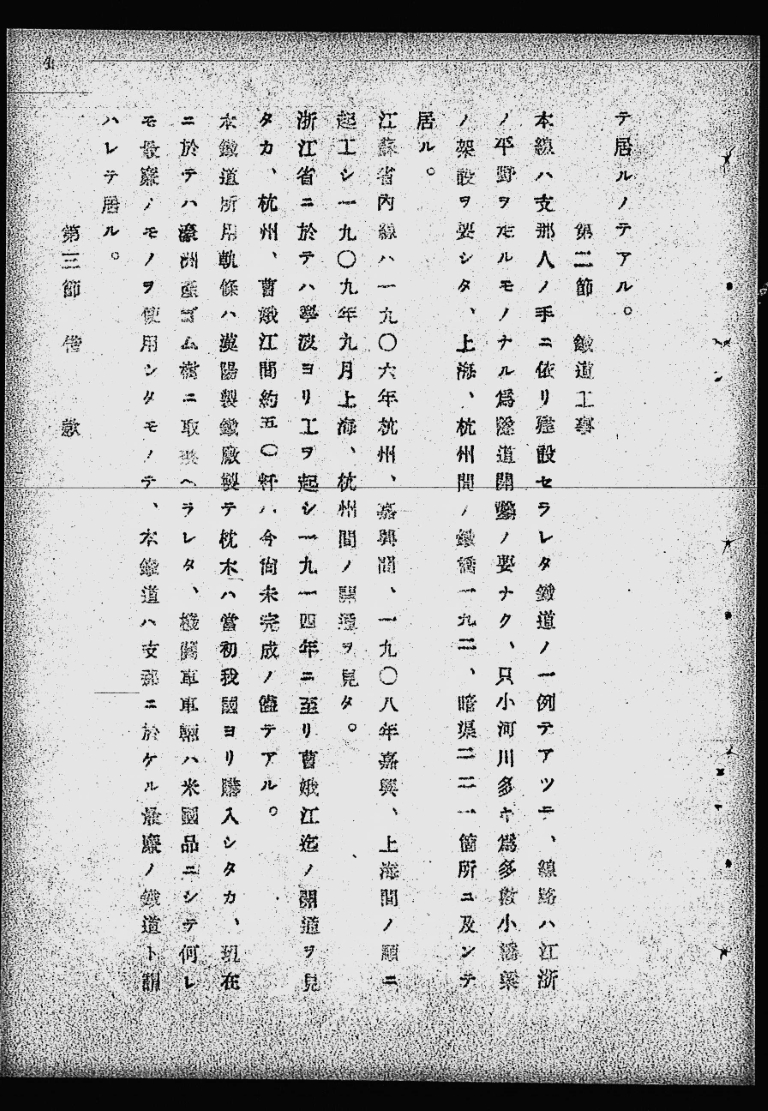 4
テ居ルノテアル。
第二節 鐵道工事
本線ハ支那人ノ手ニ依リ建設セラレタ鐵道ノ一例テアツテ、線路ハ江浙
ノ平野ヲ走ルモノナル爲隧道開鑿ノ要ナク、只小河川多キ爲多數小橋梁
ノ架設ヲ要シタ、上海、杭州間ノ鐵橋一九二、暗渠二二一箇所ニ及ンテ
居ル。
江蘇省內線ハ一九〇六年杭州、嘉興間、一九〇八年嘉興、上海間ノ順ニ
起工シ一九〇九年九月上海、杭州間ノ開通ヲ見タ。
浙江省ニ於テハ寧波ヨリ工ヲ起シ一九一四年ニ至リ曹娥江迄ノ開通ヲ見
タカ、杭州、曹娥江間約五〇粁ハ今尙未完成ノ儘テアル。
本鐵道所用軌條ハ漢陽製鐵廠製テ枕木ハ當初我國ヨリ購入シタカ、現在
ニ於テハ濠洲產ゴム樹ニ取換ヘラレタ、機關車車輛ハ米國品ニシテ何レ
モ最廉ノモノヲ使用シタモノテ、本鐵道ハ支那ニ於ケル最廉ノ鐵道ト謂
ハレテ居ル。
第三節 借款